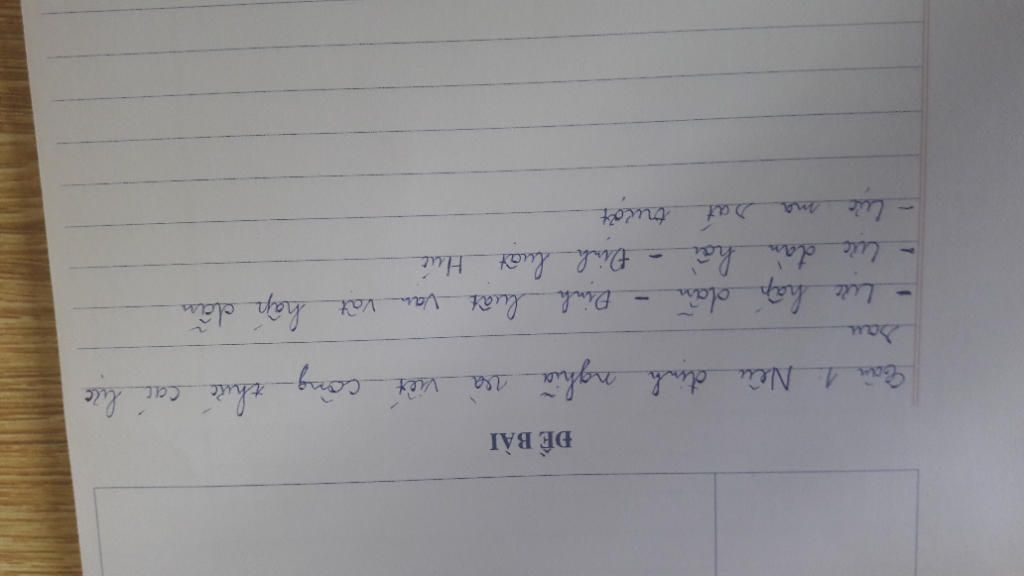 ĐỀ BÀI
Câu 1: Nêu định nghĩa và viết công thức các lực
sau
- Lực hấp dẫn - Định luật vạn vật hấp dẫn
- Lực đàn hồi - Định luật Húc
- Lực ma sát trượt